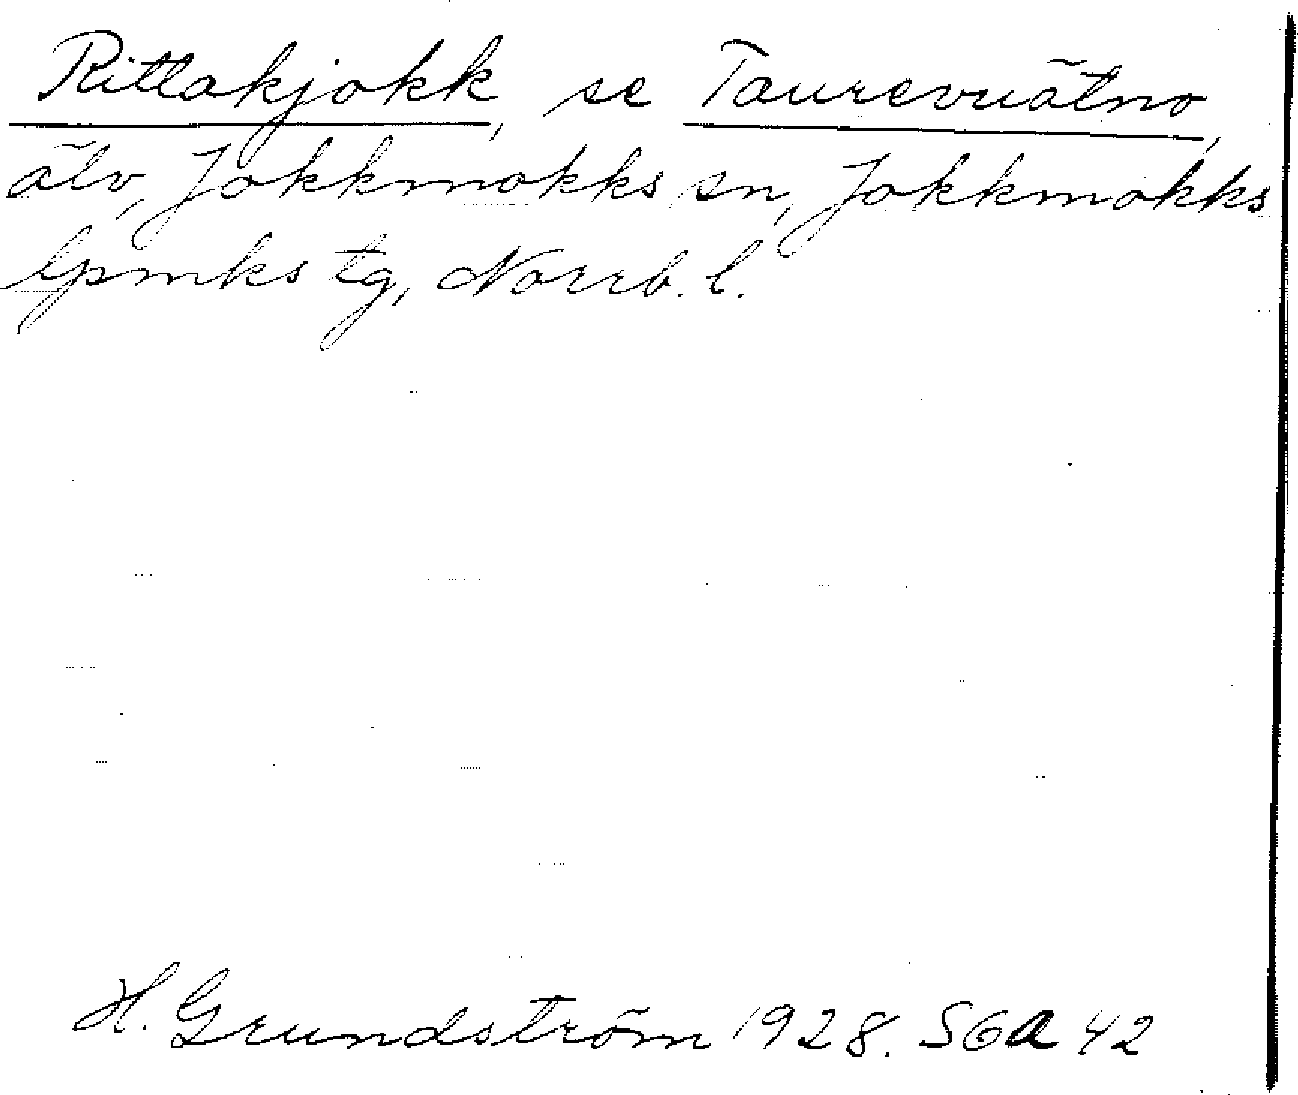 Rittakjokk, se Taurevuätno,
älv, Jokkmokks sn, Jokkmokks
lpmks tg, Norrb. l.
H. Grundström 1928. S6a 42